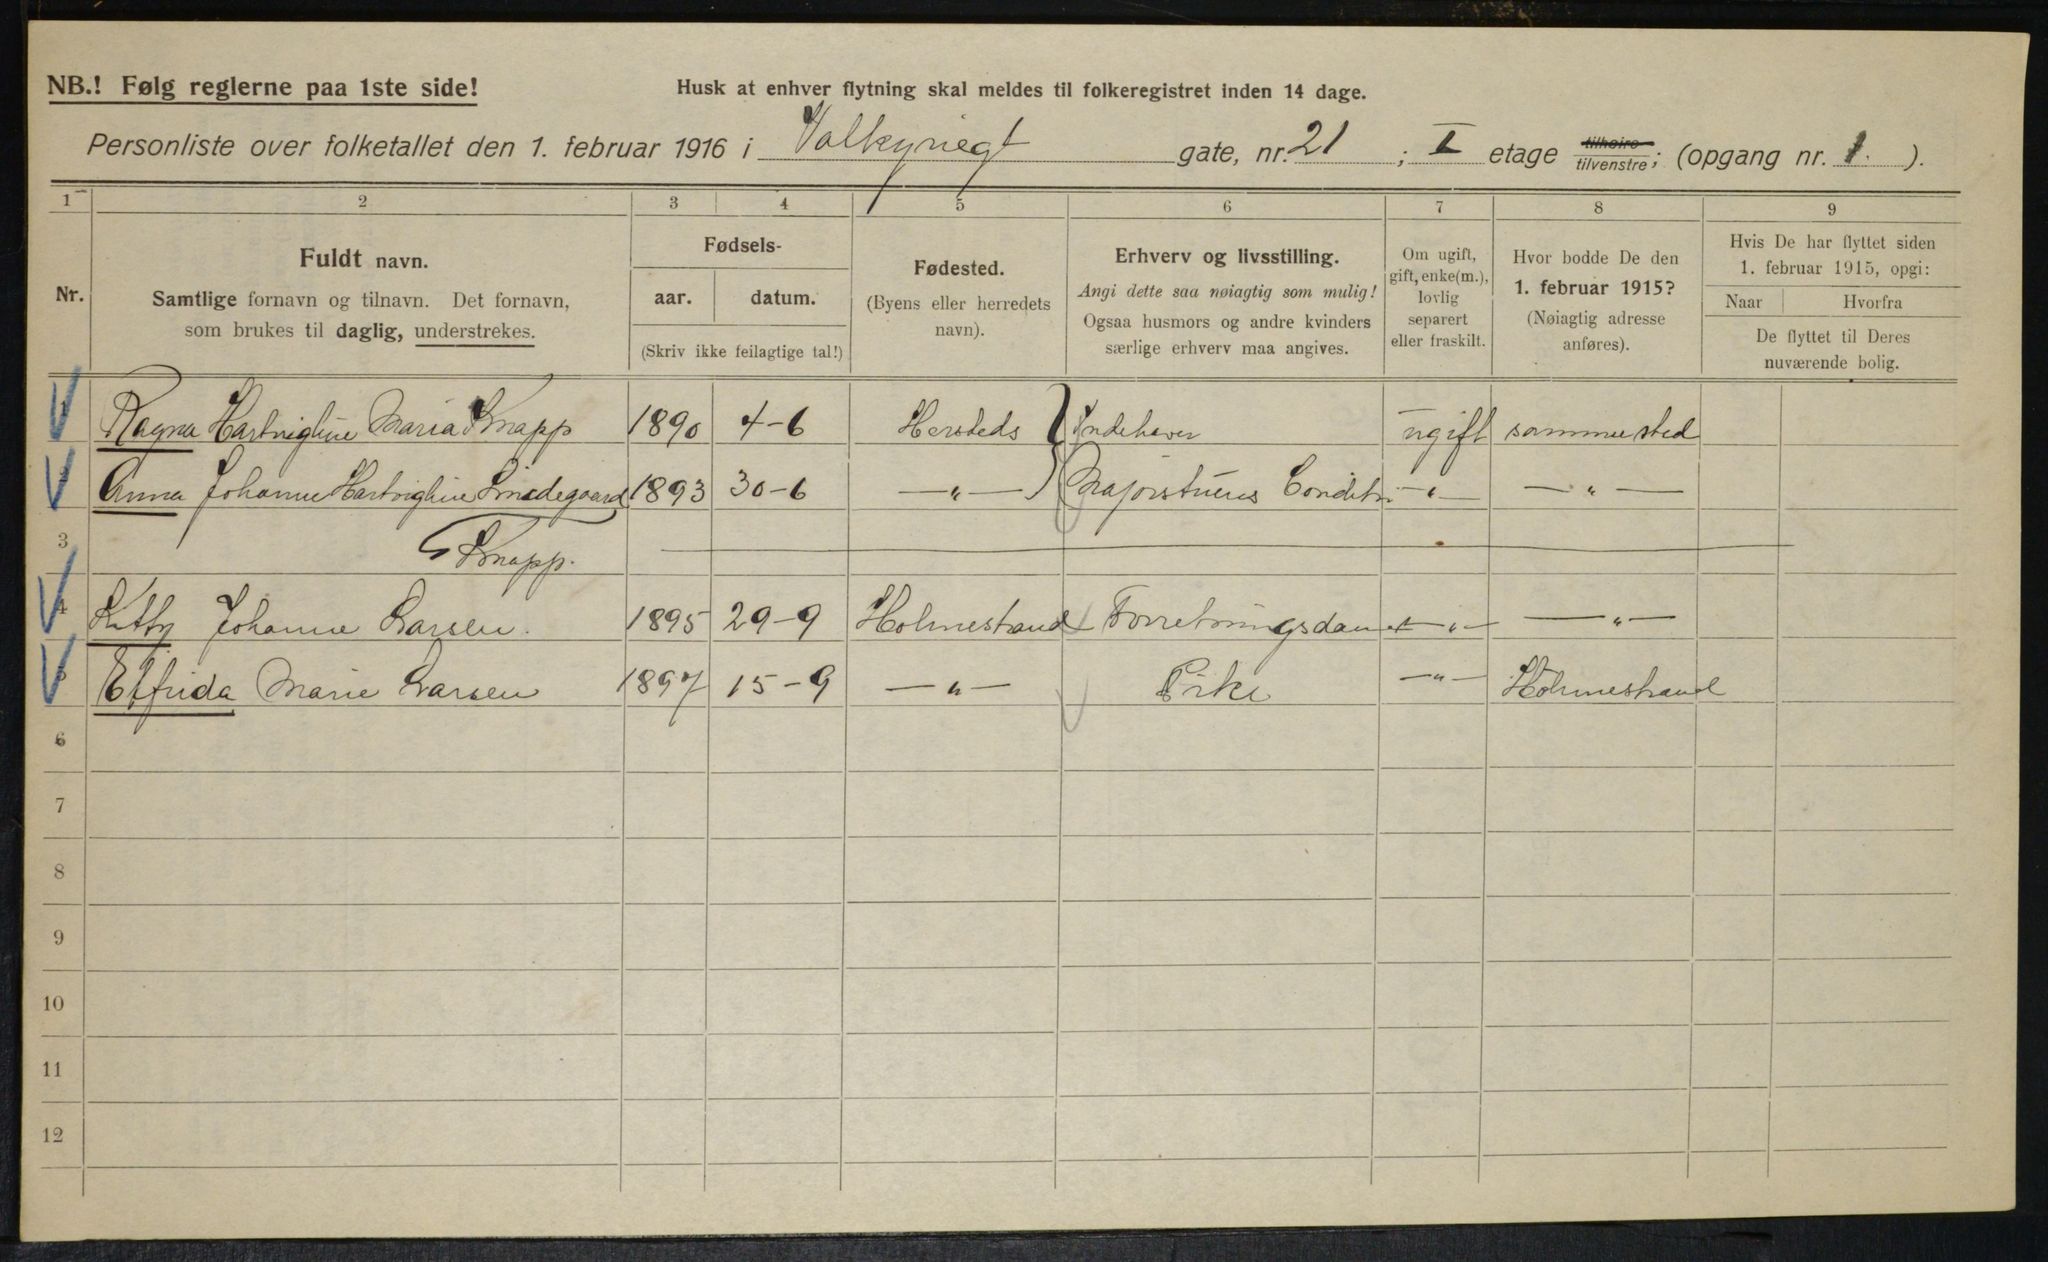 NB.! Følg reglerne paa 1ste side!
Husk at enhver flytning skal meldes til folkeregistret inden 14 dage.
Personliste over folketallet den 1. februar 1916 i Valkyriegt gate, nr. 21 ; I etage tilhøire tilvenstre; (opgang nr. 1. ).
1 2 3 4 5 6 7 8 9
Nr.
Fuldt navn.
Samtlige fornavn og tilnavn. Det fornavn,
som brukes til daglig, understrekes.
Fødsels-
aar. datum.
(Skriv ikke feilagtige tal!)
Fødested.
(Byens eller herredets
navn).
Erhverv og livsstilling.
Angi dette saa nøiagtig som mulig!
Ogsaa husmors og andre kvinders
særlige erhverv maa angives.
Om ugift,
gift, enke(m.),
lovlig
separert
eller fraskilt.
Hvor bodde De den
1. februar 1915?
(Nøiagtig adresse
anføres).
Hvis De har flyttet siden
1. februar 1915, opgi:
Naar Hvorfra
De flyttet til Deres
nuværende bolig.
1 Ragna Hartvigline Maria Knapp 1890 4-6 Hersteds Indehaver ugift sammested
2 Anna Johanne Hartvigline Lindegaard 1893 30-6 —"— Majorstuens Conditri —"— —"—
3 Knapp.
4 Kitty Johanne Larsen. 1895 29-9 Holmestrand Forretningsdame —"— —"—
5 Elfrida Marie Larsen 1897 15-9 —"— Pike —"— Holmestrand
6
7
8
9
10
11
12